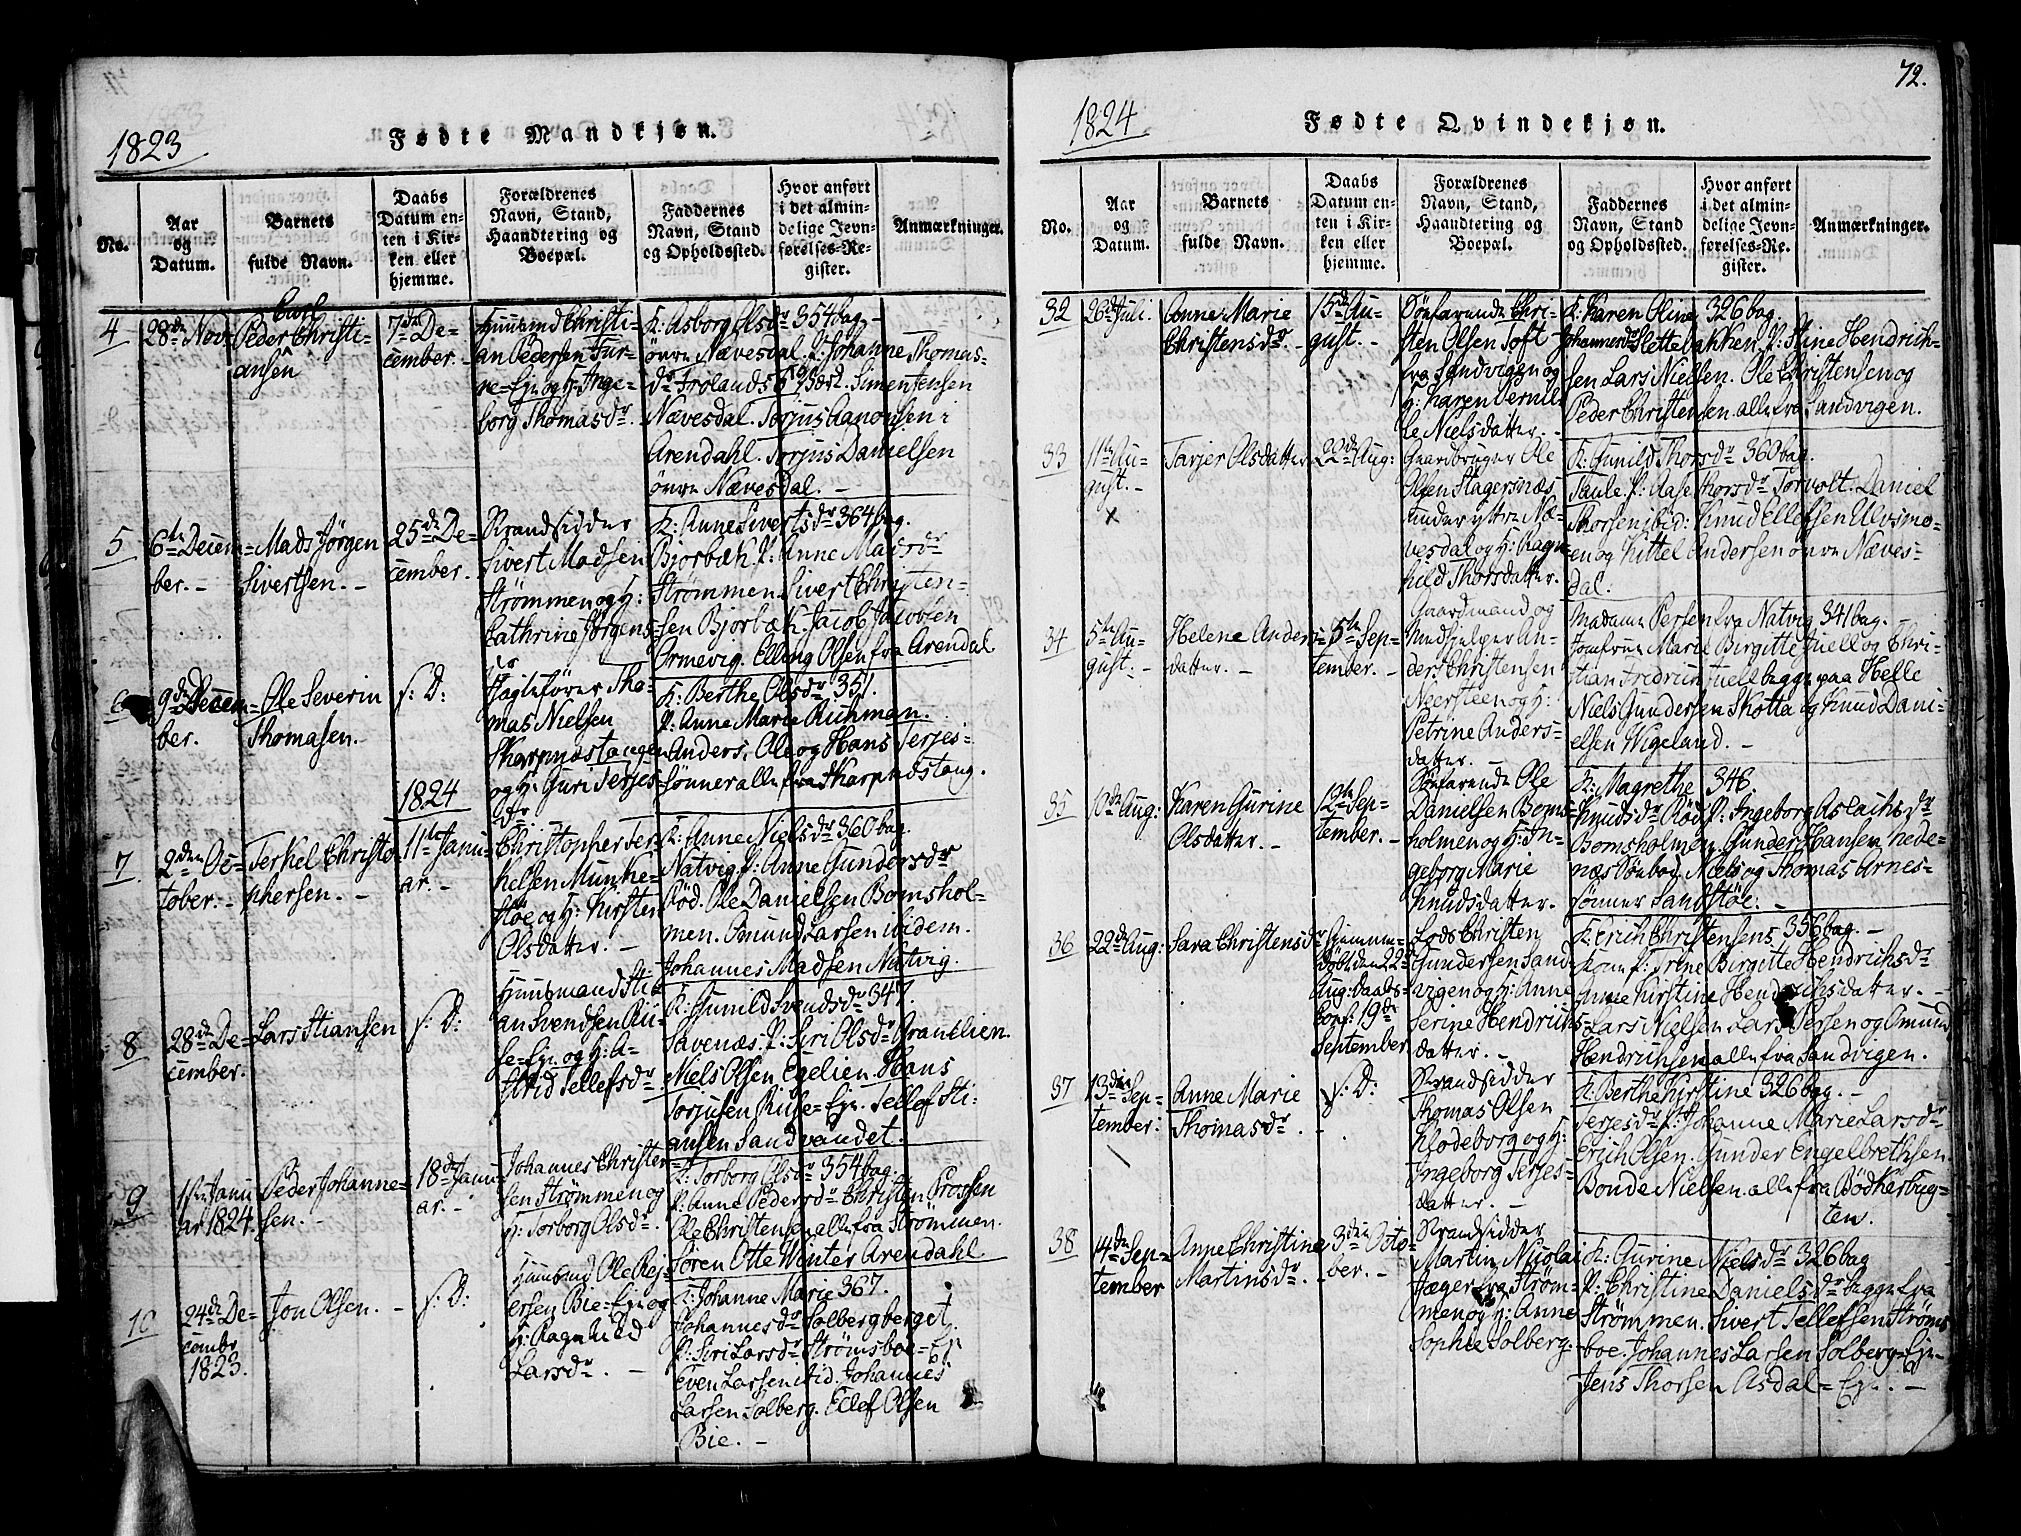 1823
Fødte Mandkjøn.
No.
Aar
og
Datum.
Barnets
fulde Navn.
Daabs
Datum en-
ten i Kir-
ken eller
hjemme.
Forældrenes
Navn, Stand,
Haandtering og
Boepæl.
Faddernes
Navn, Stand
og Opholdssted.
Hvor anført
i det almin-
delige Jevn-
førelses-Re-
gister.
Anmærkninger.
4
28de Nov:
Carl
Peder Christi-
ansen
7de De-
cember. -
Huusmd Christi-
an Pedersen Fur-
re-Eje og H: Inge-
borg Thomasdr.
K: Asborg Olsdr 354 bag
øvre Nævesdal. P: Johanne Thomas-
dr Frolands
Simensen
Nævesdal. Torjus Aanonsen i
Arendahl. Torjus Danielsen
øvre Nævesdal. -
5
6te Decem-
ber. -
Mads Jørgen
Sivertsen. -
25de De-
cember.
Strandsidder
Sivert Madsen
Strømmen og H:
Cathrine Jørgens-
dr
K: Anne Sivertsdr 364 bag.
Bjorbæk. P: Anne Madsdr
Strømmen. Sivert Christen-
sen Bjorbæk. Jacob Jacobsen
Ormevig. Elling Olsen fra Arendal.
6
9de Decem-
ber.
Ole Severin
Thomasen. -
s: D:
Tho-
mas Nielsen
Skarpnæstangen
og H: Guri Terjes-
dr.
K: Berthe Olsdr 351.
P: Anne Marie Richman.
Anders, Ole og Hans Terjes-
sønner alle fra Skarpnæstang.
1824
7
2den Oc-
tober. -
Terkel Christo-
phersen. -
11te Janu-
ar. -
Christopher Ter-
kelsen Munke-
støe og H: Kirsten
Olsdatter. -
K: Anne Nielsdr 360 bag.
Natvig. P: Anne Gundersdr
Rød. Ole Danielsen Bomshol-
men. Omund Larsen ibidem.
Johannes Madsen Natvig.
8
28de De-
cember.
Lars Stiansen
s: D:
Huusmand Sti-
an Svendsen Ru-
se-Eje og H: A-
strid Tellefsdr
K: Gunild Svendsdr 347.
Savenæs. P: Siri Olsdr Granelien.
Niels Olsen Egelien. Hans
Torjusen Ruse-Eje. Tellef Sti-
ansen Sandvandet.
9
1ste Janu
ar 1824.
Peder Johanne-
sen. -
18de Janu
ar. -
Johannes Christen-
sen Strømmen og
H: Torborg Olsdr.
K: Torborg Olsdr 354 bag.
P: Anne Pedersdr Christen Prossen
Ole Christensen alle fra Strømmen.
Søren Otte Winter Arendahl.
10
24de De-
cembr
1823.
Jon Olsen. -
s: D:
Huusmd Ole Rej-
ersen Bie-Eje og
H: Ragnhild
Larsdr. -
K: Johanne Marie 367.
Johannesdr Solbergberget,
P: Siri Larsdr Strømsboe-Ej:
Even Larsen itid. Johannes
Larsen Solberg. Ellef Olsen
Bie. -
72.
1824
Fødte Qvindekjøn.
No.
Aar
og
Datum.
Barnets
fulde Navn.
Daabs
Datum en-
ten i Kir-
ken eller
hjemme.
Forældrenes
Navn, Stand,
Haandtering og
Boepæl.
Faddernes
Navn, Stand
og Opholdssted.
Hvor anført
i det almin-
delige Jevn-
førelses-Re-
gister.
Anmærkninger.
32
26de Juli.
Anne Marie
Christensdr. -
15de Au-
gust. -
Søefarende Chri-
sten Olsen Toft
fra Sandvigen og
H: Karen Pernil-
le Nielsdatter.
K: Karen Oline 326 bag.
Johannesdr Slettebakken. P: Stine Hendrich-
sen Lars Nielsen. Ole Christensen og
Peder Christensen. alle fra Sandvigen.
33
11te Au-
gust. -
x
Tarjer Olsdatter
22de Aug:
Gaardbruger Ole
Olsen Stagersnæs
under yttre Næ-
vesdal og H: Ragn-
hild Thorsdatter.
K: Gunild Thorsdr 360 bag.
Taule. P: Aase Thorsdr Torvolt. Daniel
Thorsen ibid: Knud Ellefsen Ulvsmo-
en og Kittel Andersen øvre Næves-
dal.
34
5te Au-
gust. -
Helene Anders-
datter. -
5te Sep-
tember. -
Gaardmand og
Medhjelper An-
ders Christensen
Neersteen og H:
Petrine Anders-
datter. -
Madame Persen fra Natvig 341 bag. -
Jomfrue Marie Birgitte Juell og Chri-
stian Fredrich Juell begge paa Helle
Niels Gundersen Skotta og Knud Dani-
elsen Wigeland. -
35
10de Aug:
Karen Gurine
Olsdatter. -
12te Sep-
tember. -
Søefarende Ole
Danielsen Boms-
holmen og H: In-
geborg Marie
Knudsdatter.
K: Magrethe 346.
Knudsdr Rød. P: Ingeborg Aslachsdr
Bomsholmen. Gunder Hansen nede-
næs Niels og Thomas Arnes-
sønner Sandstøe. -
36
22de Aug:
Sara Christensdr
Hjemme-
døbt den 22de
Aug: Daabs-
19de
September
Lods Christen
Gundersen Sand-
vigen og H: Anne
Serine Hendrichs-
datter. -
K: Erich Christensens 356 bag. -
Kone P: Trine Birgitte Hendrichsdr
Anne Kirstine Hendrichsdatter. -
Lars Nielsen Lars Persen og Omund
Hendrichsen alle fra Sandvigen.
37
13de Sep-
tember.
Anne Marie
Thomasdr. -
s: D:
Strandsidder
Thomas Olsen
Klodeborg og H:
Ingeborg Terjes-
datter. -
K: Berthe Kirstine 326 bag. -
Terjesdr P: Johanne Marie Larsdr
Erich Olsen. Gunder Engelbrethsen
Bonde Nielsen. alle fra Bødkerbug-
ten.
38
14de Sep-
tember
Anne Christine
Martinsdr. -
3den Octo-
ber. -
Strandsidder
Martin Nicolai
Jæger fra Strøm-
men og H: Anne
Sophie Solberg.
K: Gurine Nielsdr 326 bag
P: Christine Danielsdr begge fra
Strømmen. Sivert Tellefsen Strøms-
boe. Johannes Larsen Solberg-Eje-
Jens Thorsen Asdal-Eje. -